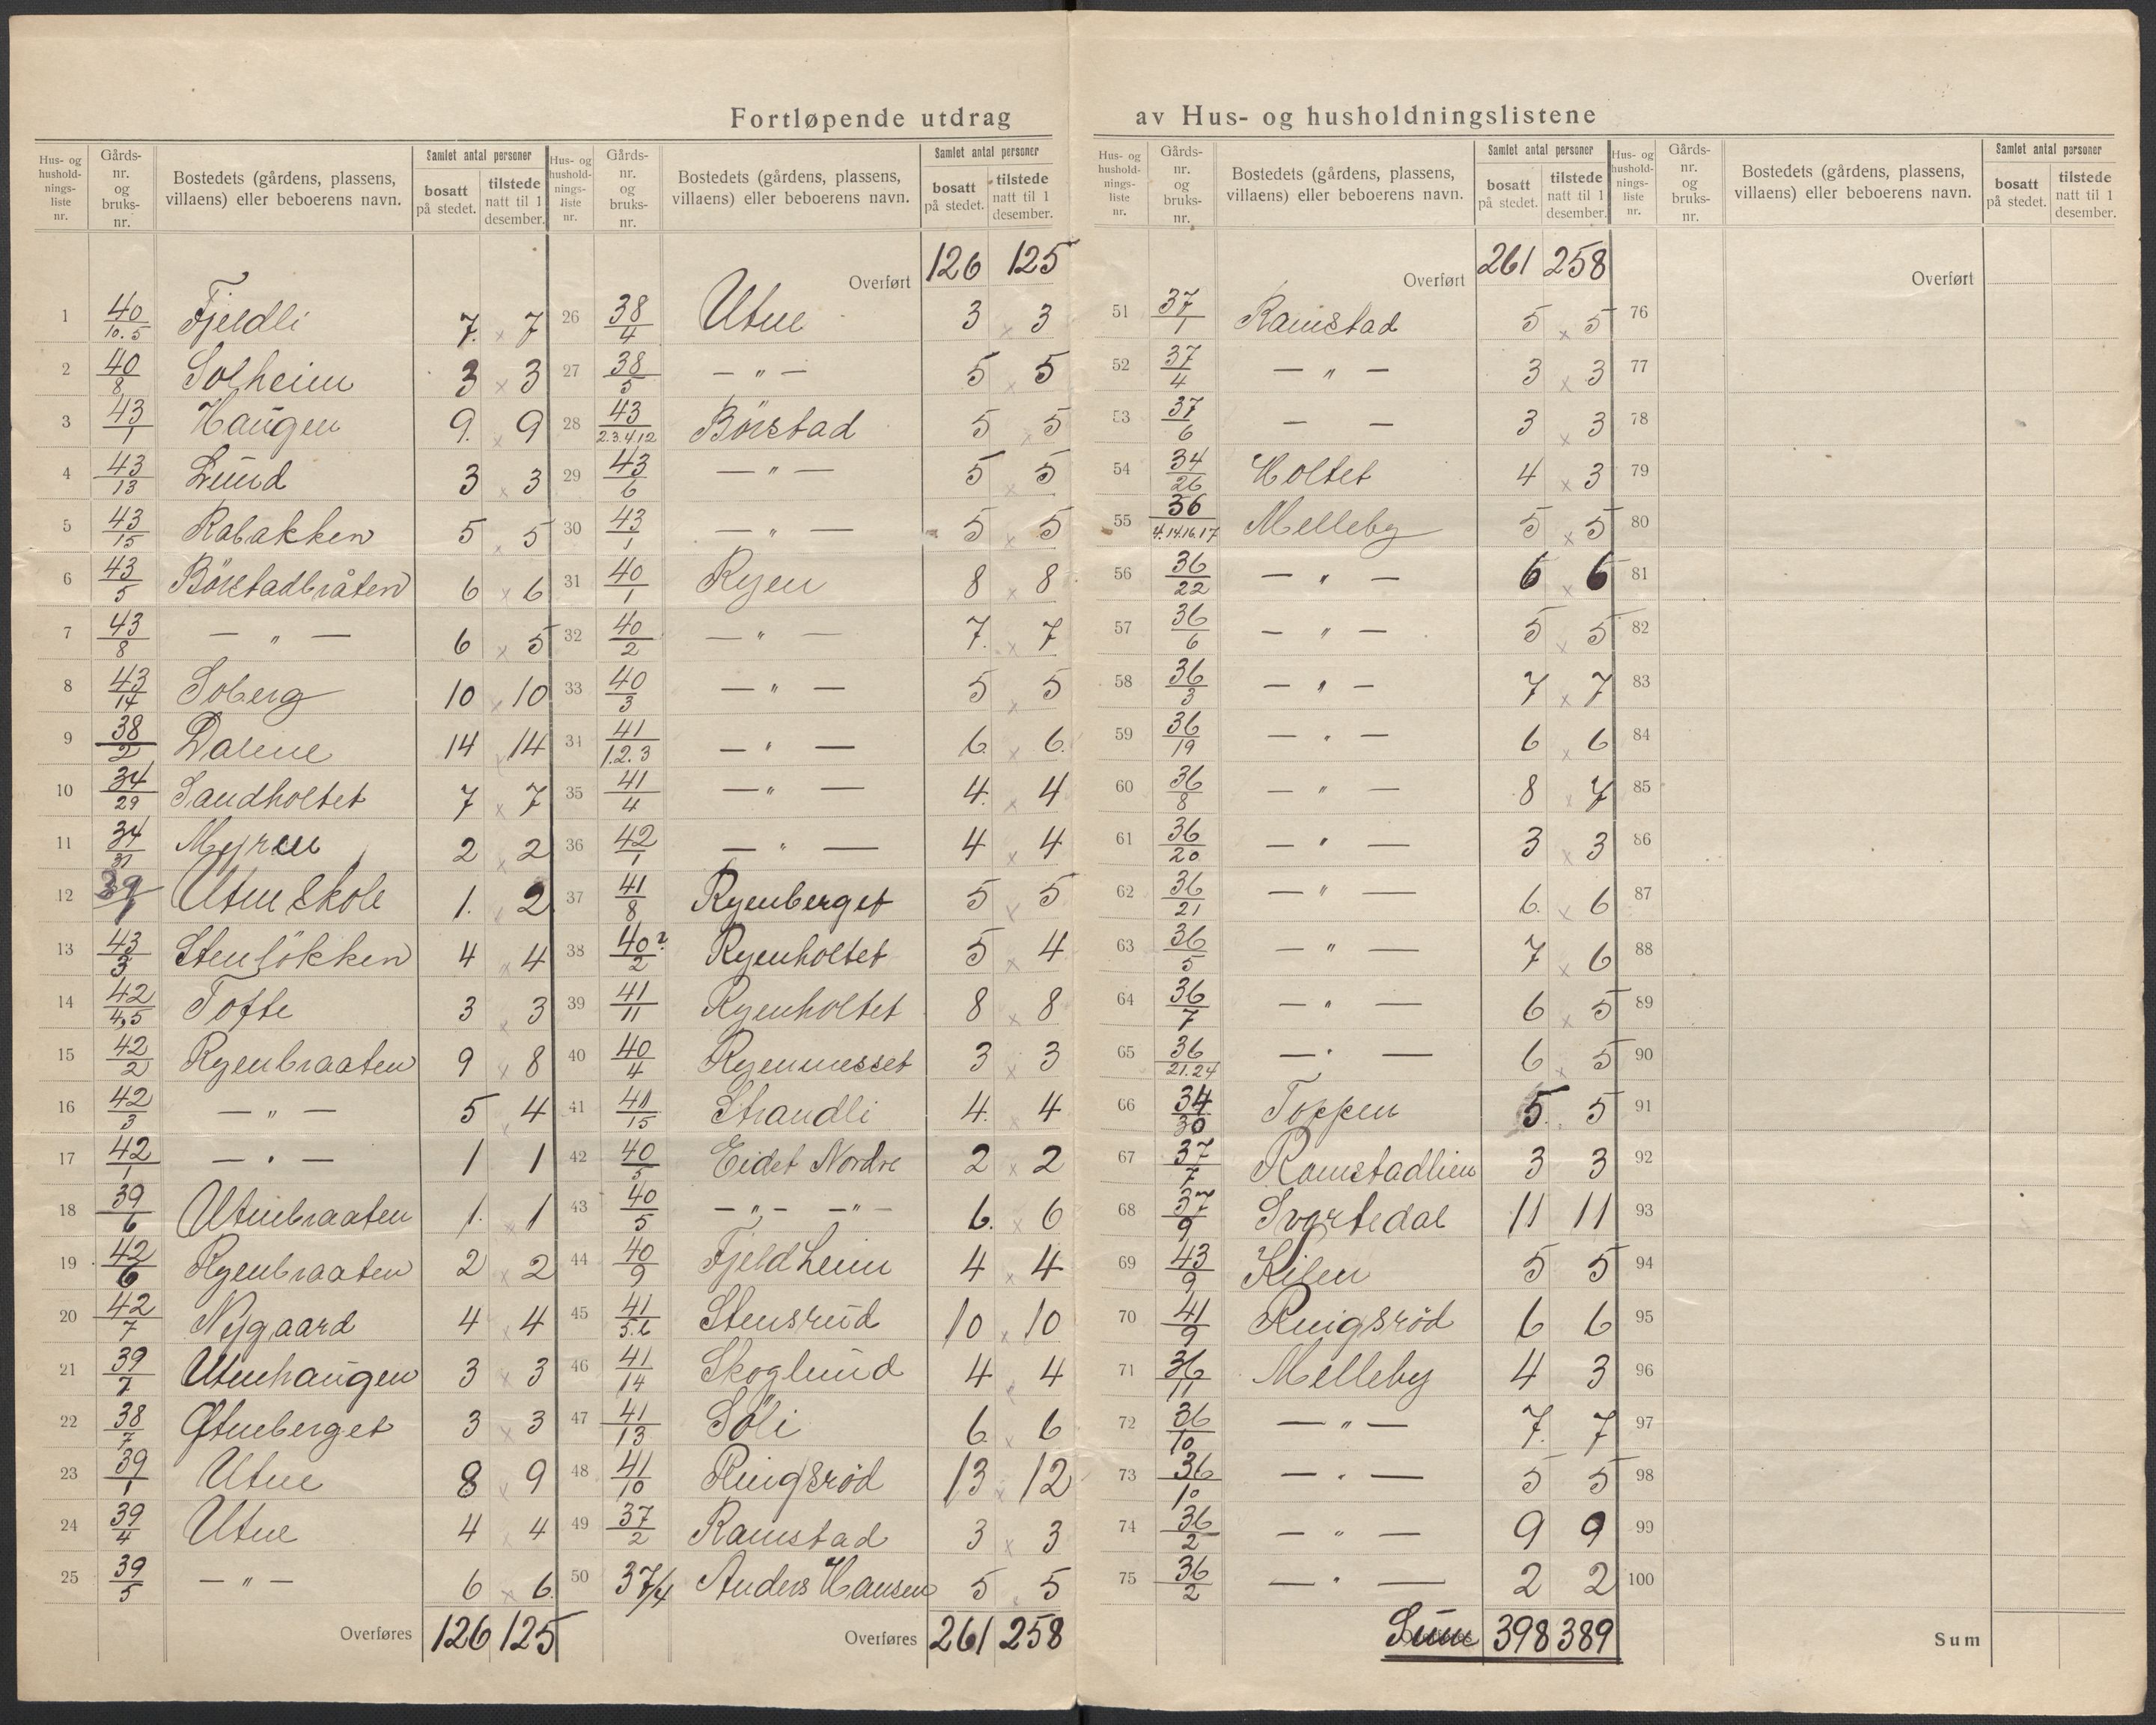 Fortløpende utdrag av Hus- og husholdningslistene
Hus- og husholdnings-liste nr. Gårds-nr. og bruks-nr. Bostedets (gårdens, plassens, villaens) eller beboerens navn. Samlet antal personer bosatt på stedet. tilstede natt til 1 desember.
1 40/10.5 Fjeldli 7 x 7
2 40/8 Solheim 3 x 3
3 43/1 Haugen 9 x 9
4 43/13 Lund 3 x 3
5 43/15 Rabakken 5 x 5
6 43/5 Börstadbråten 6 x 6
7 43/8 — „ — 6 x 5
8 43/14 Soberg 10 x 10
9 38/2 Dalene 14 x 14
10 34/29 Sandholtet 7 x 7
11 34/31 Myren 2 x 2
12 39/1 Utne Skole 1. x 2
13 43/3 Stenlökken 4 x 4
14 42/4,5 Tofte 3 x 3
15 42/2 Ryenbraaten 9 x 8
16 42/3 — „ — 5 x 4
17 42/1 — „ — 1 1
18 39/6 Utnebraaten 1. x 1
19 42/6 Ryenbraaten 2 x 2
20 42/7 Nygaard 4 x 4
21 39/7 Utnehaugen 3 x 3
22 38/7 Øtneberget 3 x 3
23 39/1 Utne 8 x 9
24 39/4 Utne 4 x 4
25 39/5 — „ — 6 x 6
Overføres 126 125
Hus- og husholdnings-liste nr. Gårds-nr. og bruks-nr. Bostedets (gårdens, plassens, villaens) eller beboerens navn. Samlet antal personer bosatt på stedet. tilstede natt til 1 desember.
Overført 126 125
26 38/4 Utne 3 x 3
27 38/5 — „ — 5 x 5
28 43/2.3.4.12 Börstad 5 x 5
29 43/6 — „ — 5 x 5
30 43/1 — „ — 5 x 5
31 40/1 Ryen 8 x 8
32 40/2 — „ — 7. x 7
33 40/3 — „ — 5 x 5
34 41/1.2.3 — „ — 6. x 6.
35 41/4 — „ — 4. x 4
36 42/1 — „ — 4 x 4
37 41/8 Ryenberget 5 x 5
38 40?/2 Ryenholtet 5 x 4
39 41/11 Ryenholtet 8 x 8
40 40/4 Ryennesset 3 x 3
41 41/15 Strandli 4. x 4
42 40/5 Eidet Nordre 2 x 2
43 40/5 — „ — — „ — 6. x 6
44 40/9 Fjeldheim 4 x 4
45 41/5.6 Stensrud 10 x 10
46 41/14 Skoglund 4 x 4
47 41/13 Söli 6 x 6
48 41/10 Ringsrød 13 x 12
49 37/2 Ramstad 3 x 3
50 37/4 Anders Hansen 5 x 5
Overføres 261 258
Hus- og husholdnings-liste nr. Gårds-nr. og bruks-nr. Bostedets (gårdens, plassens, villaens) eller beboerens navn. Samlet antal personer bosatt på stedet. tilstede natt til 1 desember.
Overført 261 258
51 37/1 Ramstad 5 x 5
52 37/4 — „ — 3 x 3
53 37/6 — — 3 x 3
54 34/26 Holtet 4 x 3
55 36/4.14.16.17 Melleby 5 x 5
56 36/22 — „ — 6 x 6
57 36/6 — „ — 5 x 5
58 36/3 — „ — 7 x 7
59 36/19 — „ — 6 x 6
60 36/8 — „ — 8 x 7
61 36/20 — „ — 3 x 3
62 36/21 — „ — 6. x 6
63 36/5 — „ — 7 x 6
64 36/7 — „ — 6 x 5
65 36/21.24 — „ — 6 x 5
66 34/30 Toppen 5. 5
67 37/7 Ramstadlien 3 3
68 37/9 Svartedal 11 11
69 43/9 Kilen 5 5
70 41/9 Ringsrød 6 6
71 36/11 Melleby 4 3
72 36/10 — „ — 7. 7
73 36/10 — „ — 5 5
74 36/2 — „ — 9 9
75 36/2 — „ — 2 2
Sum 398 389
Hus- og husholdnings-liste nr. Gårds-nr. og bruks-nr. Bostedets (gårdens, plassens, villaens) eller beboerens navn. Samlet antal personer bosatt på stedet. tilstede natt til 1 desember.
Overført
76
77
78
79
80
81
82
83
84
85
86
87
88
89
90
91
92
93
94
95
96
97
98
99
100
Sum